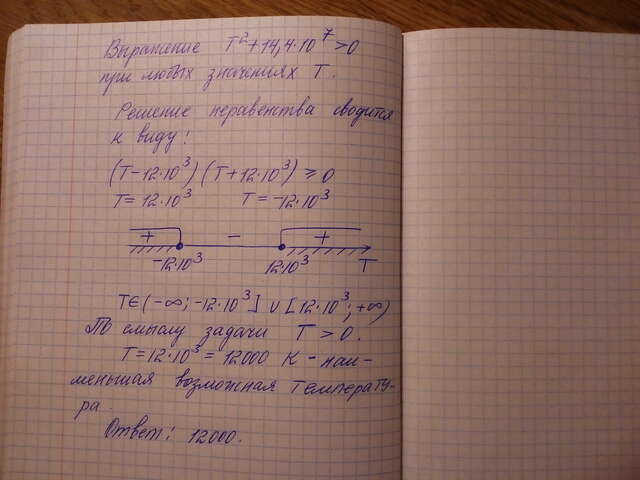 Выражение T²+14,4·10⁷>0
при любых значениях T.
Решение неравенства сводится
к виду:
(T-12·10³)(T+12·10³)≥0
T=12·10³ T=-12·10³
+ - +
-12·10³ 12·10³ T
T∈(-∞;-12·10³]∪[12·10³;+∞)
По смыслу задачи T>0.
T=12·10³=12000 К - наи-
меньшая возможная температу-
ра.
Ответ: 12000.